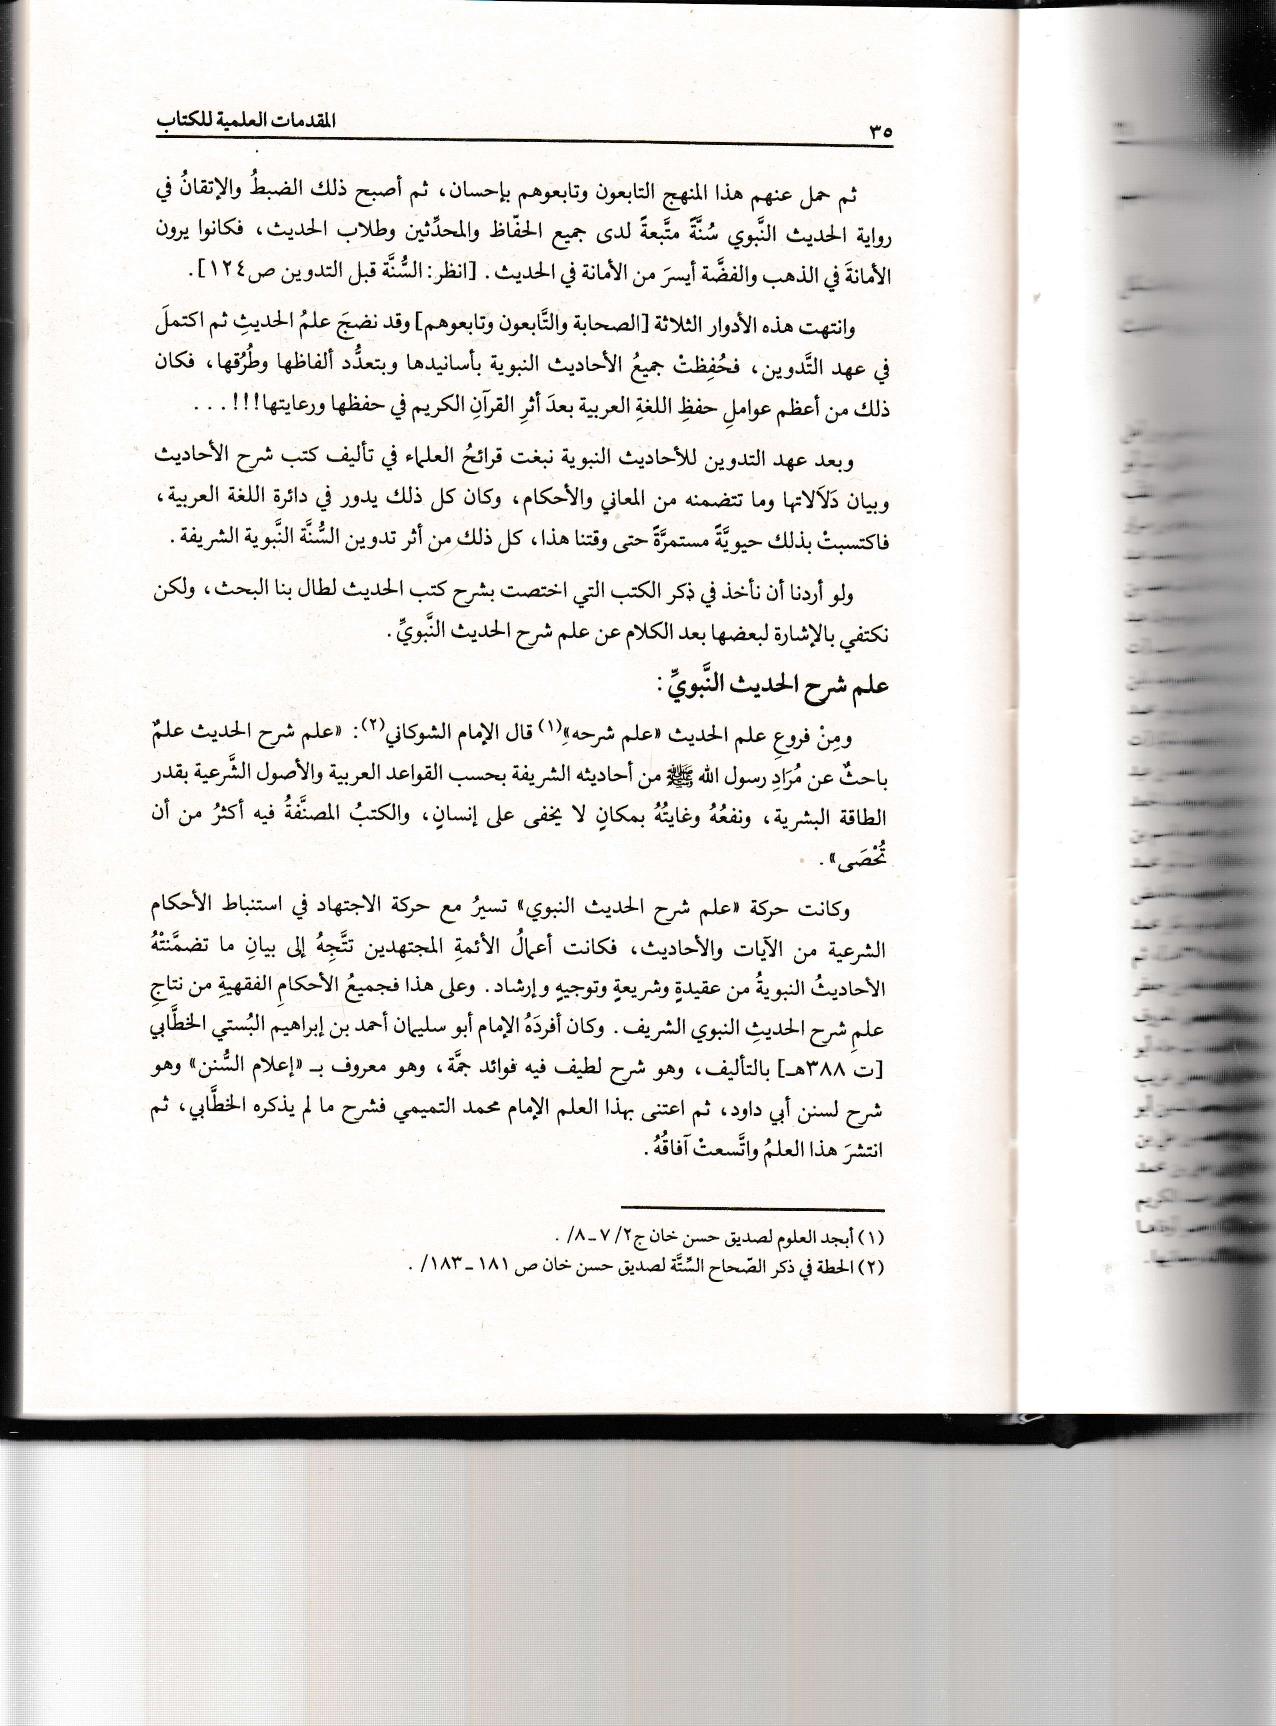 ٣٥
المقدمات العلمية للكتاب
ثم حمل عنهم هذا المنهج التابعون وتابعوهم بإحسان، ثم أصبح ذلك الضبطُ والإتقانُ في
رواية الحديث النَّبوي سُنَّةً متَّبعةً لدى جميع الحفّاظ والمحدِّثين وطلاب الحديث، فكانوا يرون
الأمانةَ في الذهب والفضَّة أيسرَ من الأمانة في الحديث. [انظر: السُّنة قبل التدوين ص١٢٤].
وانتهت هذه الأدوار الثلاثة [الصحابة والتَّابعون وتابعوهم] وقد نضجَ علمُ الحديثِ ثم اكتملَ
في عهد التَّدوين، فحُفِظتْ جميعُ الأحاديث النبوية بأسانيدها وبتعدُّد ألفاظها وطُرُقها، فكان
ذلك من أعظم عواملِ حفظِ اللغةِ العربية بعدَ أثرِ القرآنِ الكريم في حفظها ورعايتها!!!...
وبعد عهد التدوين للأحاديث النبوية نبغت قرائحُ العلماء في تأليف كتب شرح الأحاديث
وبيان دَلَالاتها وما تتضمنه من المعاني والأحكام، وكان كل ذلك يدور في دائرة اللغة العربية،
فاكتسبتْ بذلك حيويَّةً مستمرَّةً حتى وقتنا هذا، كل ذلك من أثر تدوين السُّنَّة النَّبوية الشريفة.
ولو أردنا أن نأخذ في ذكر الكتب التي اختصت بشرح كتب الحديث لطال بنا البحث، ولكن
نكتفي بالإشارة لبعضها بعد الكلام عن علم شرح الحديث النَّبويِّ.
علم شرح الحديث النَّبويِّ:
ومِنْ فروعِ علم الحديث «علم شرحه»(١) قال الإمام الشوكاني(٢): «علم شرح الحديث علمٌ
باحثٌ عن مُرَادِ رسول الله ﷺ من أحاديثه الشريفة بحسب القواعد العربية والأصول الشَّرعية بقدر
الطاقة البشرية، ونفعُهُ وغايتُهُ بمكانٍ لا يخفى على إنسانٍ، والكتبُ المصنَّفةُ فيه أكثرُ من أن
تُحْصَى».
وكانت حركة «علم شرح الحديث النبوي» تسيرُ مع حركة الاجتهاد في استنباط الأحكام
الشرعية من الآيات والأحاديث، فكانت أعمالُ الأئمةِ المجتهدين تتَّجِهُ إلى بيانِ ما تضمَّنتْهُ
الأحاديثُ النبويةُ من عقيدةٍ وشريعةٍ وتوجيهٍ وإرشاد. وعلى هذا فجميعُ الأحكامِ الفقهيةِ من نتاجِ
علمِ شرح الحديثِ النبوي الشريف. وكان أفردَهُ الإمام أبو سليمان أحمد بن إبراهيم البُستي الخطَّابي
[ت ٣٨٨هـ] بالتأليف، وهو شرح لطيف فيه فوائد جمَّة، وهو معروف بـ «إعلام السُّنن» وهو
شرح لسنن أبي داود، ثم اعتنى بهذا العلم الإمام محمد التميمي فشرح ما لم يذكره الخطَّابي، ثم
انتشرَ هذا العلمُ واتَّسعتْ آفاقُهُ.
(١) أبجد العلوم لصديق حسن خان ج٢/ ٧ـ٨/.
(٢) الحطة في ذكر الصّحاح السِّتَّة لصديق حسن خان ص ١٨١ ـ ١٨٣/.